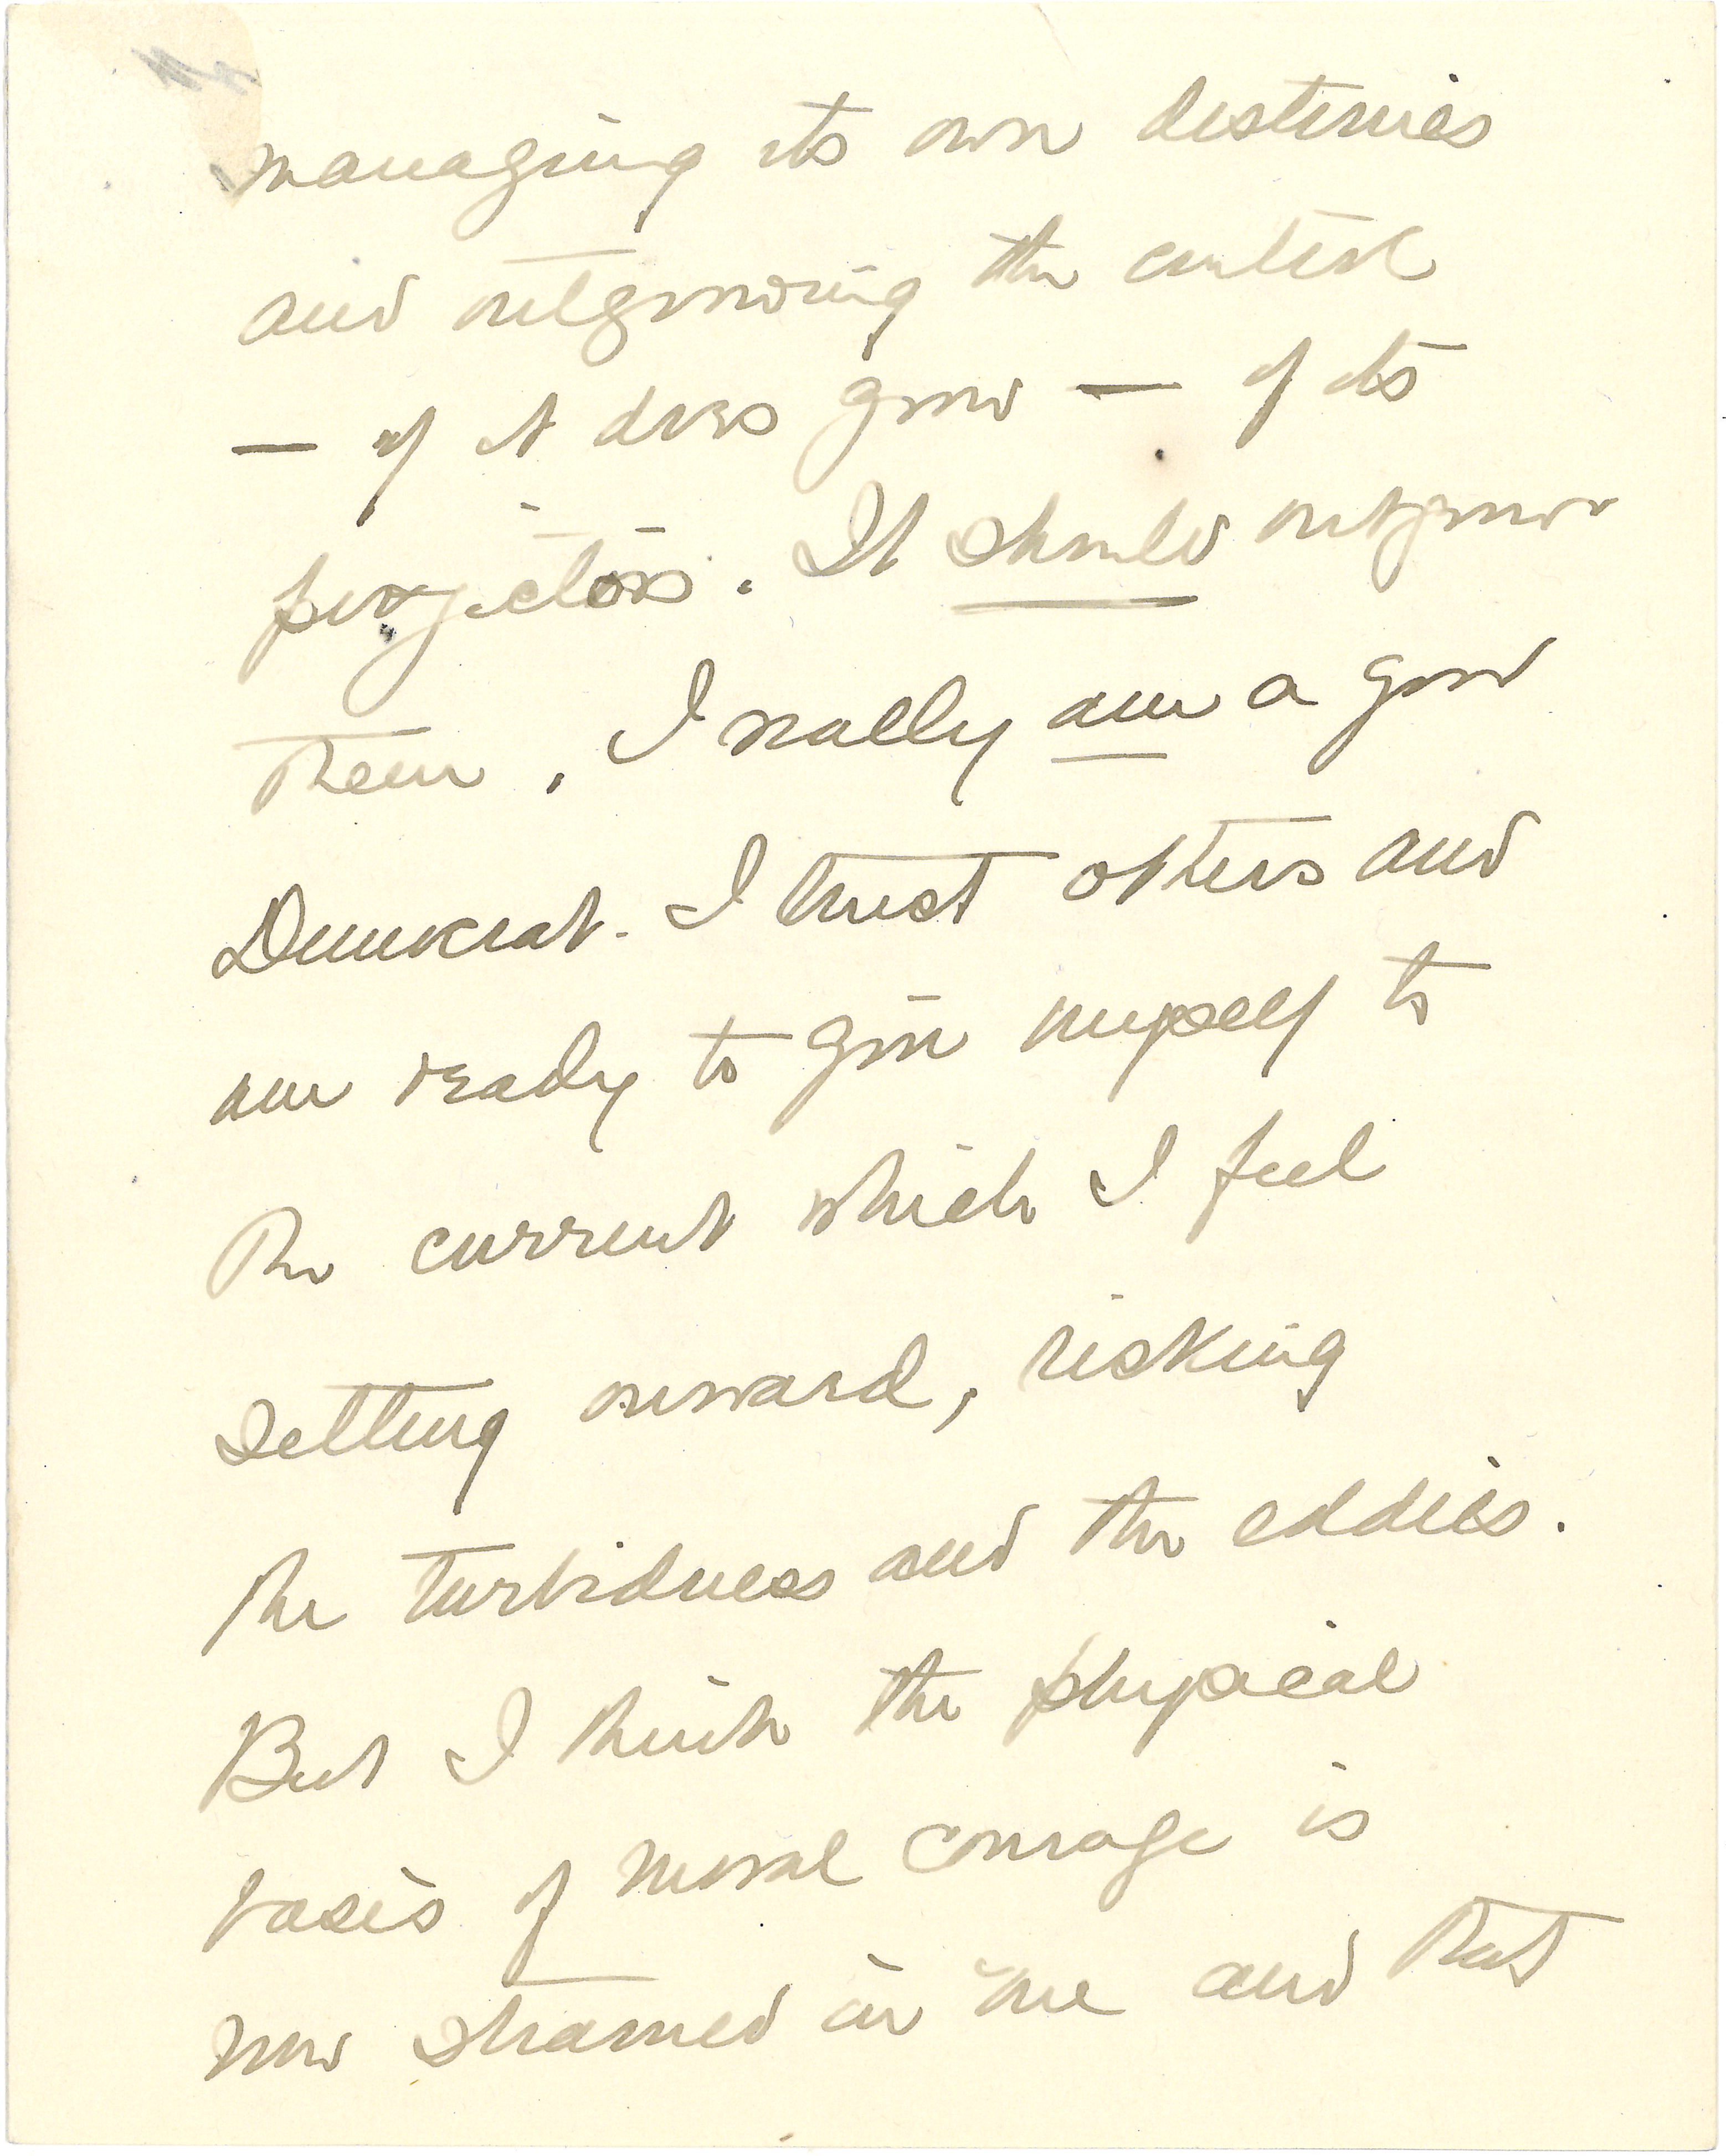 managing its own destinies
and outgrowing the control
— if it does grow — of its
projectors. It should outgrow
them. I really am a good
Democrat. I trust others and
am ready to give myself to
the current which I feel
setting onward, risking
the turbidness and the eddies.
But I think the physical
basis of moral courage is
now strained in me and that